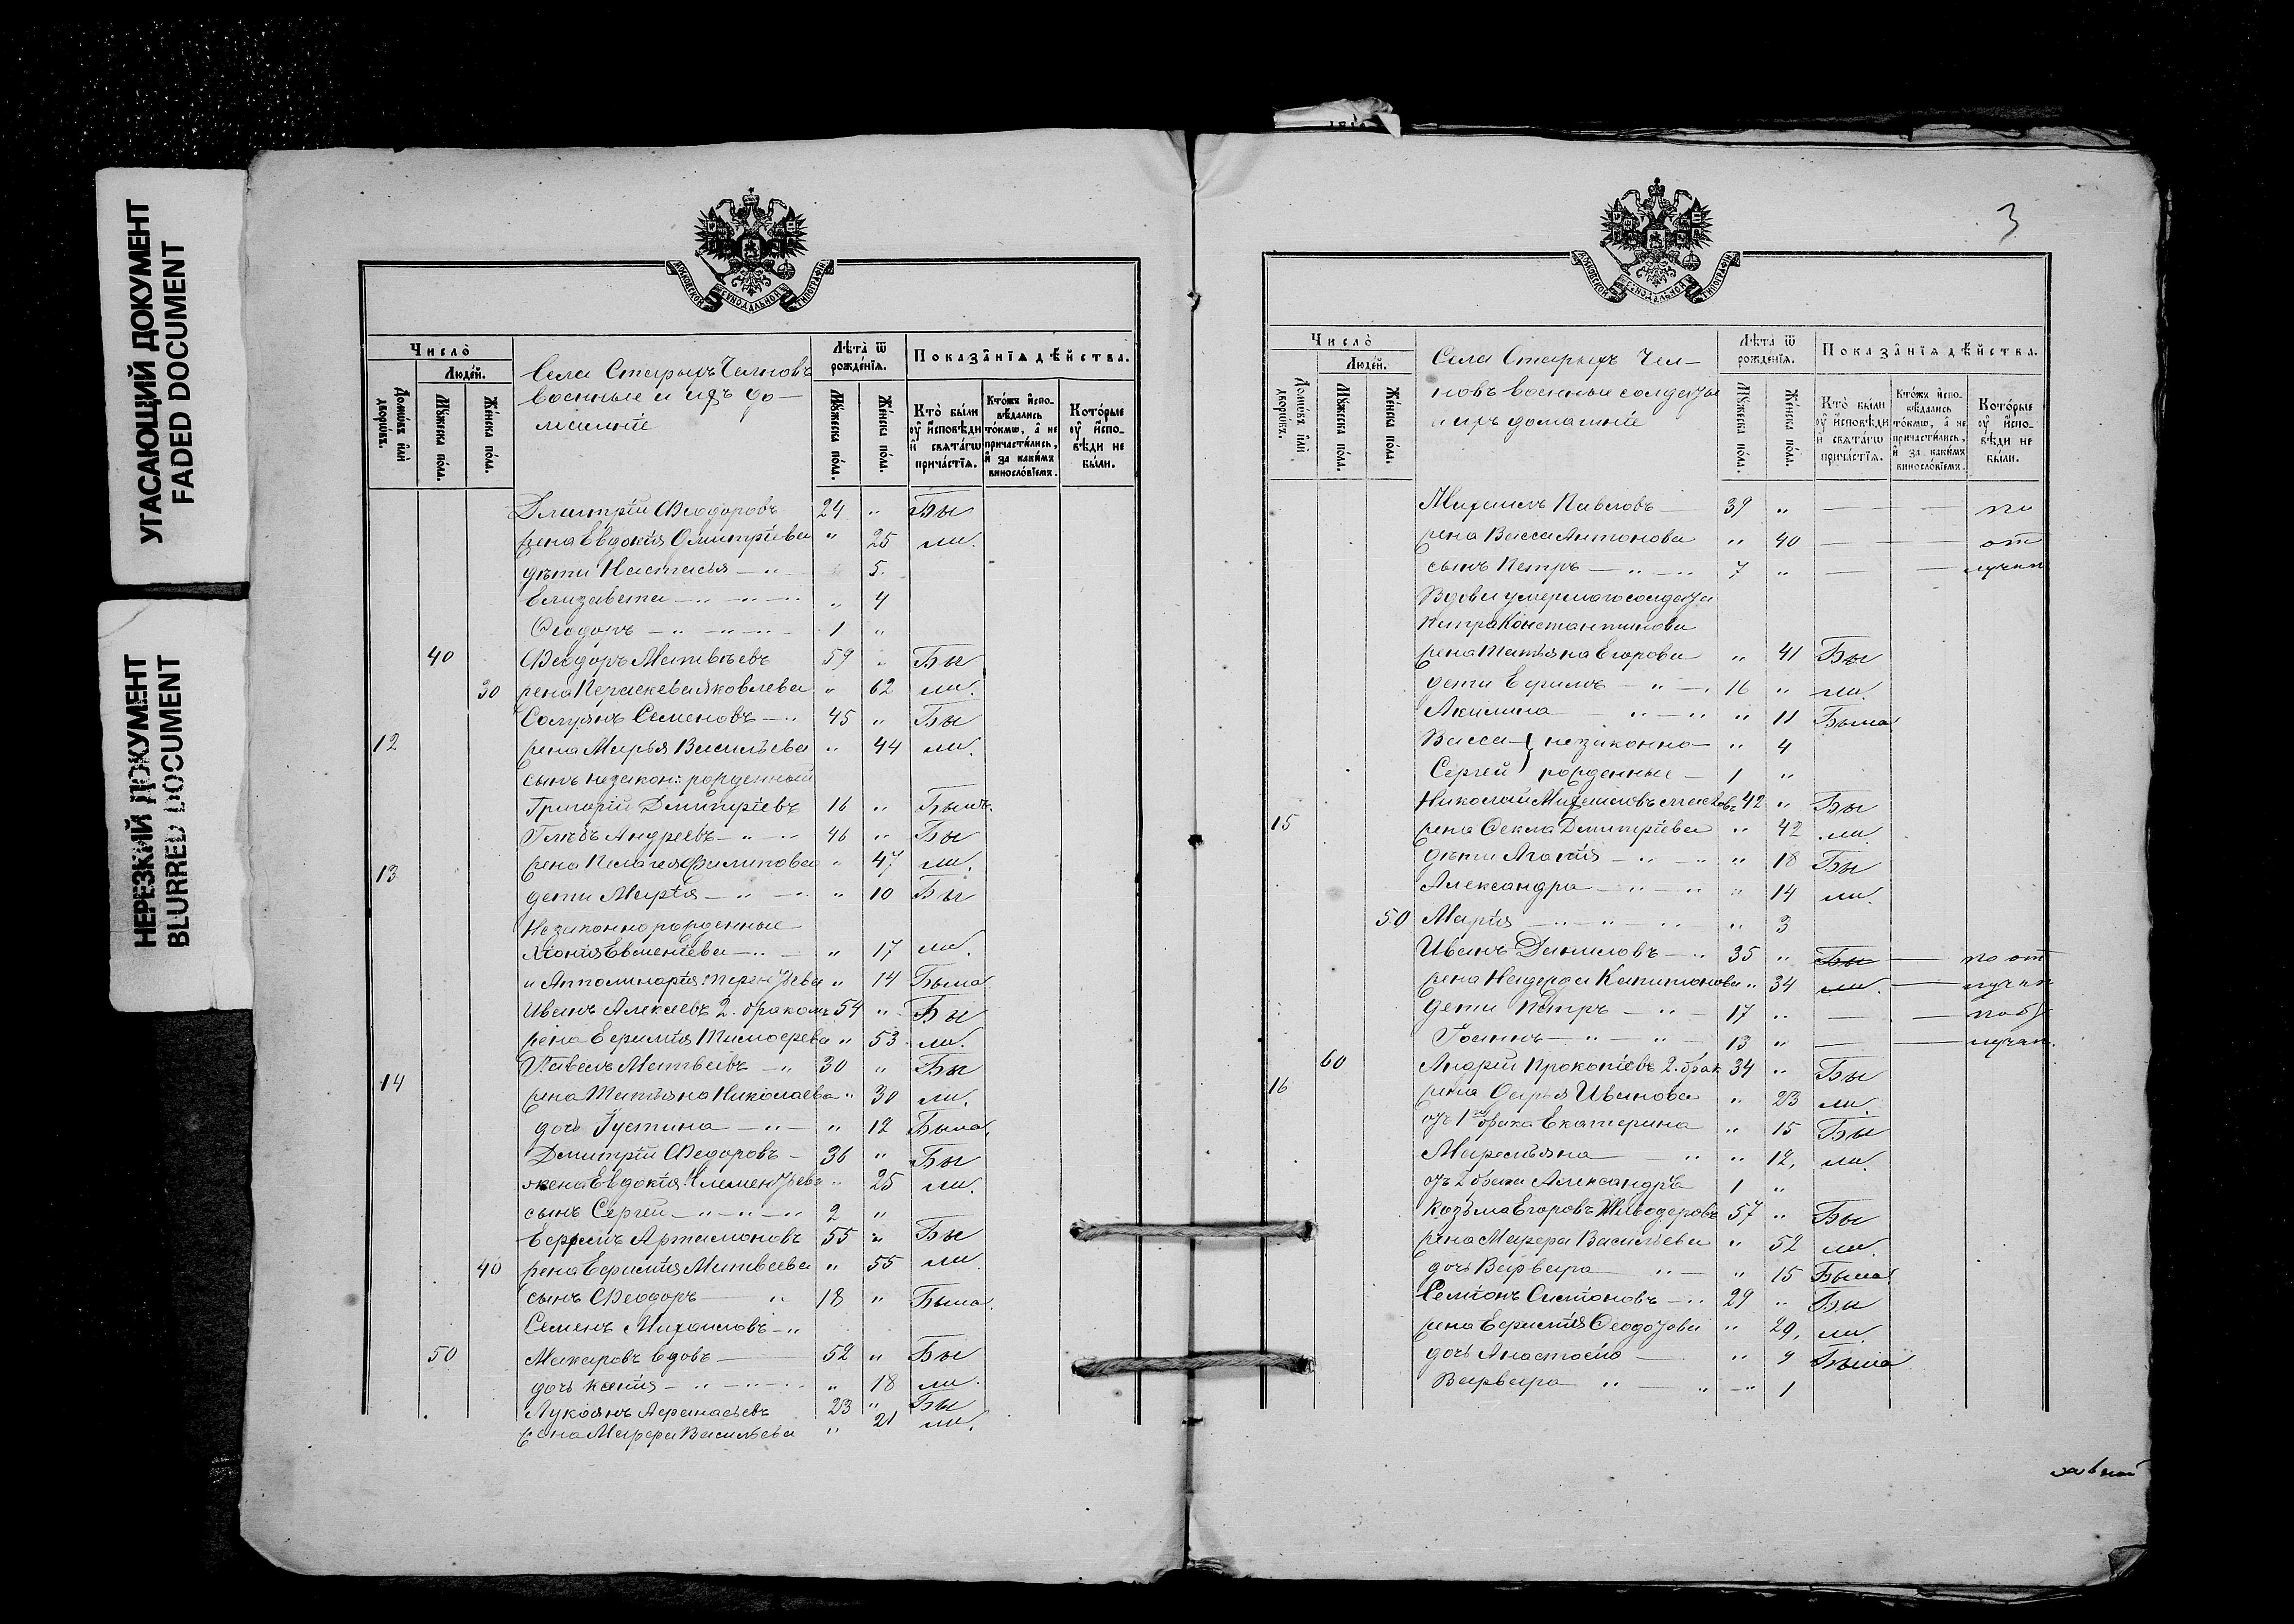 УГАСАЮЩИЙ ДОКУМЕНТ
FADED DOCUMENT
НЕРЕЗКИЙ ДОКУМЕНТ
BLURRED DOCUMENT
МОСКОВСКОЙ СѴНОДАЛЬНОЙ ТИПОГРАФІИ
Число̀
Людей.
Домо́въ и҆лѝ дворѡ́въ.
Мꙋ́жеска по́ла.
Же́нска по́ла.
Села Старыхъ Челновъ
военные и ихъ до-
машніе
Лѣта̀ ѿ рожде́нїѧ.
Мꙋ́жеска по́ла.
Же́нска по́ла.
Показа̑нїѧ дѣ́йства.
Кто̀ бы́ли ᲂу҆ и҆сповѣ́ди и҆ свѧта́гѡ прича́стїѧ.
Кто́жъ и҆спо- вѣ́дались то́кмѡ, а҆ не причасти́лись, и҆ за каки́мъ виносло́вїемъ.
Кото́рые ᲂу҆ и҆спо- вѣди не бы́ли.
Дмитрій Ѳеодоровъ 24 „ Бы
жена Евдокія Дмитріева „ 25 ли.
дѣти Настасья — „ — 5.
Елизавета — „ — „ — „ 4
Ѳеодоръ — „ — „ — 1 „
40 Ѳеодоръ Матвѣевъ 59 „ Бы
30 жена Параскева Яковлева „ 62 ли.
Семеновъ — „ 45 „ Бы
12 жена Марья Васильева „ 44 ли.
сынъ незакон: рожденный
Григорій Дмитріевъ 16 „ Былъ.
Глѣбъ Андреевъ — „ — 46 „ Бы
13 жена Пелагея Филипова „ 47. ли.
дети Марія — „ — „ 10 Бы
Незаконнорожденные
Хіонія Евменіева — „ — „ 17 ли.
и Апполинарія Терентьева „ 14 Была
Иванъ Алексеевъ 2. бракомъ 54 „ Бы
жена Ефимія Тимофеева „ 53 ли.
Павелъ Матвеевъ — „ 30 „ Бы
14 жена Татьяна Николаева „ 30 ли.
дочь Іустина — „ — „ 12 Была.
Дмитрій Ѳедоровъ — 36 „ Бы
жена Евдокія Клементьева „ 25 ли.
сынъ Сергей — „ — „ — „ 2 „
Ефремъ Артамоновъ 55 „ Бы
40 жена Ефимія Матвеева „ 55 ли
сынъ Ѳеодоръ — „ 18 „ Была.
Семенъ Михаиловъ — „
50 Макаровъ вдовъ — 52 „ Бы
дочь Ксенія — „ — „ — „ 18 ли.
Лукоянъ Афанасьевъ 23 „ Бы
жена Марфа Васильева „ 21 ли.
3
МОСКОВСКОЙ СѴНОДАЛЬНОЙ ТИПОГРАФІИ
Число̀
Людей.
Домо́въ и҆лѝ дворѡ́въ.
Мꙋ́жеска по́ла.
Же́нска по́ла.
Села Старыхъ Чел-
новъ военные солдаты
и ихъ домашніе
Лѣта̀ ѿ рожде́нїѧ.
Мꙋ́жеска по́ла.
Же́нска по́ла.
Показа̑нїѧ дѣ́йства.
Кто̀ бы́ли ᲂу҆ и҆сповѣ́ди и҆ свѧта́гѡ прича́стїѧ.
Кто́жъ и҆спо- вѣ́дались то́кмѡ, а҆ не причасти́лись, и҆ за каки́мъ виносло́вїемъ.
Кото́рые ᲂу҆ и҆спо- вѣди не бы́ли.
Михаилъ Павловъ — 39 „ — — — по
жена Васса Антонова „ 40 — — — от
сынъ Петръ — „ — „ 7 „ — — лучкѣ
Вдова умершаго солдата
Петра Константинова
жена Татьяна Егорова „ 41 Бы
дети Ефимъ — „ — 16 „ ли.
Акилина — „ — „ „ 11 Была
Васса } незаконно — „ 4
Сергей } рожденные — 1 „
Николай Михаиловъ 42 „ Бы
15 жена Ѳекла Дмитріева „ 42 ли
дѣти Агафія — „ — „ 18 Бы
Александра — „ — „ „ 14 ли.
50 Марія — „ — „ — „ 3
Иванъ Даниловъ — „ 35 „ Бы — по от
жена Надежда Капитонова „ 34 ли. — лучкѣ
дети Петръ — „ — 17 „ — — по от
Іоаннъ — „ — „ 13 „ — — лучкѣ.
60 Андрей Прокопіевъ 2. брак 34 „ Бы
16 жена Дарья Иванова „ 23 ли.
отъ 1го брака Екатерина „ 15 Бы
Маремьяна — „ „ 12, ли.
отъ 2 брака Александръ 1 „
Козьма Егоровъ Живодеровъ 57 „ Бы
жена Марфа Васильева „ 52 ли.
дочь Варвара — „ — „ 15 Была
Семіонъ Симіоновъ — „ 29 „ Бы
жена Ефимія Ѳеодотова „ 29, ли.
дочь Анастасія — „ 9 Была
Варвара „ — „ — „ 1